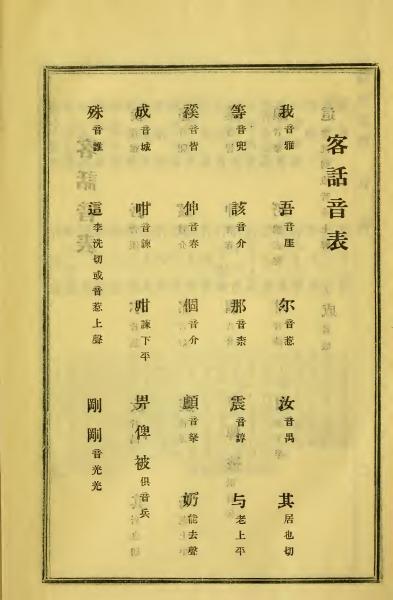 客話音表
我音雅 吾音厓 尔音惹 汝音禺 其居也切
等音兜 該音介 那音柰 震音諄 与老上平
徯音皆 伸音春 個音介 顧音拏 妳能去聲
成音城 咁音諫 咁諫下平 畀俾被俱音兵
殊音誰 這李洗切或音惹上聲 剛剛音光光